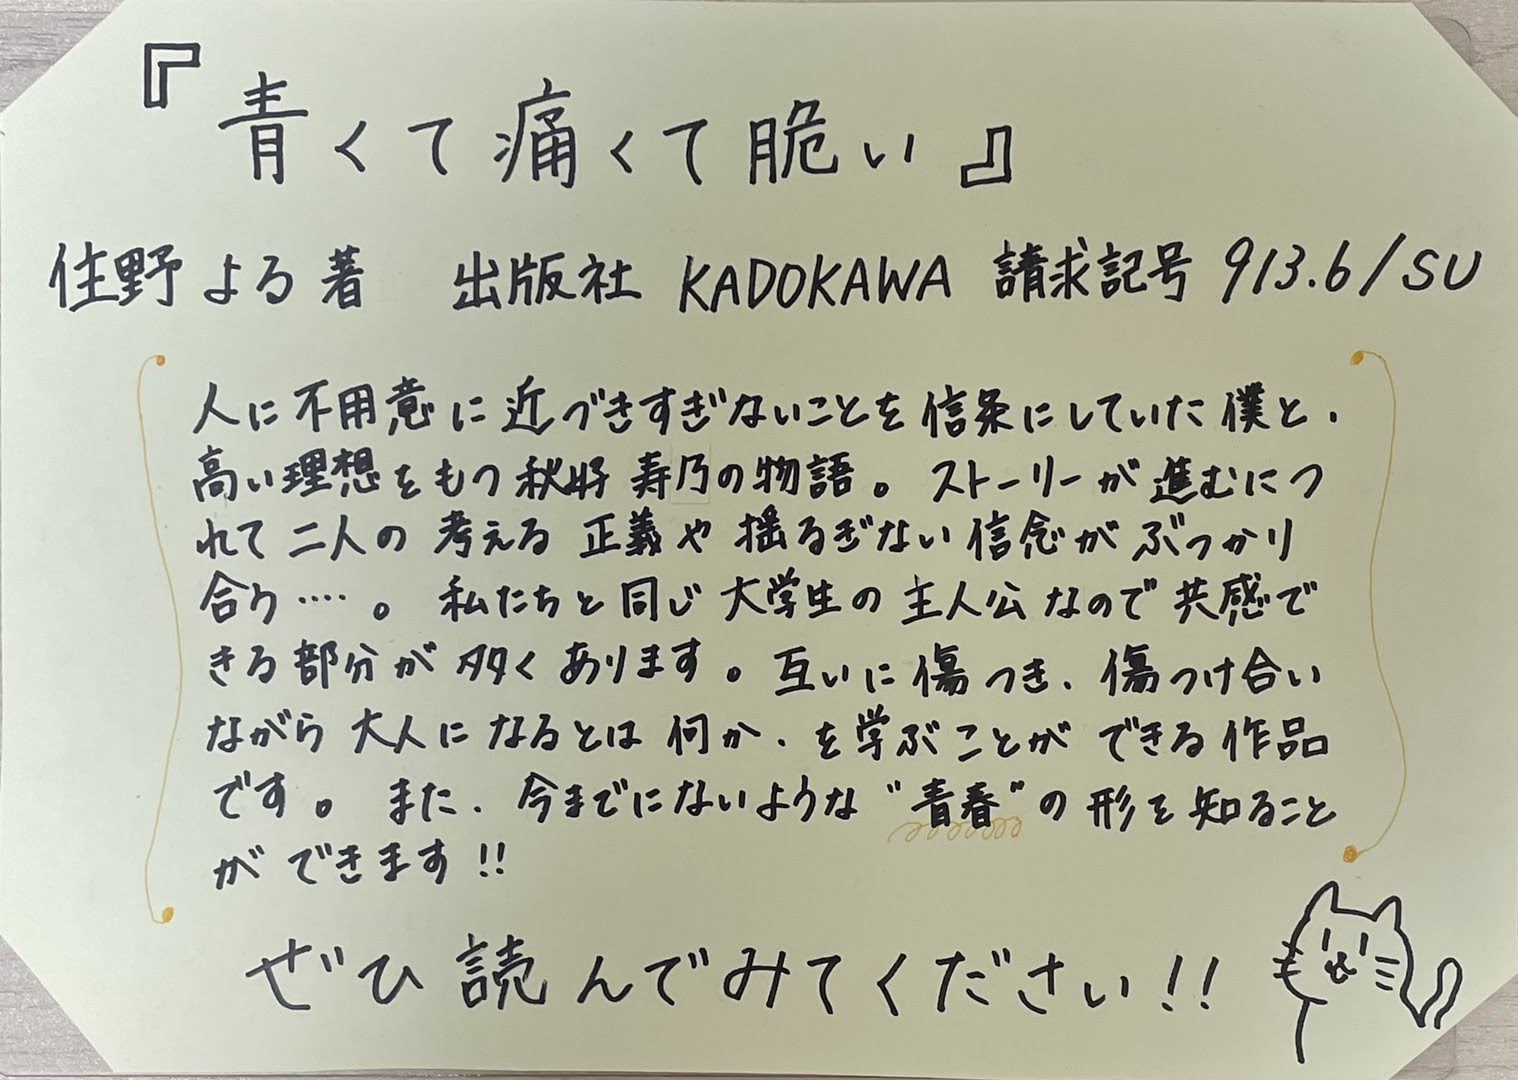 『青くて痛くて脆い』
住野よる著 出版社 KADOKAWA 請求記号 913.6/SU
人に不用意に近づきすぎないことを信条にしていた僕と、
高い理想をもつ秋好寿乃の物語。ストーリーが進むにつ
れて二人の考える正義や揺るぎない信念がぶつかり
合り‥‥。私たちと同じ大学生の主人公なので共感で
きる部分が多くあります。互いに傷つき、傷つけ合い
ながら大人になるとは何か、を学ぶことができる作品
です。また、今までにないような"青春"の形を知ること
ができます!!
ぜひ読んでみてください!!